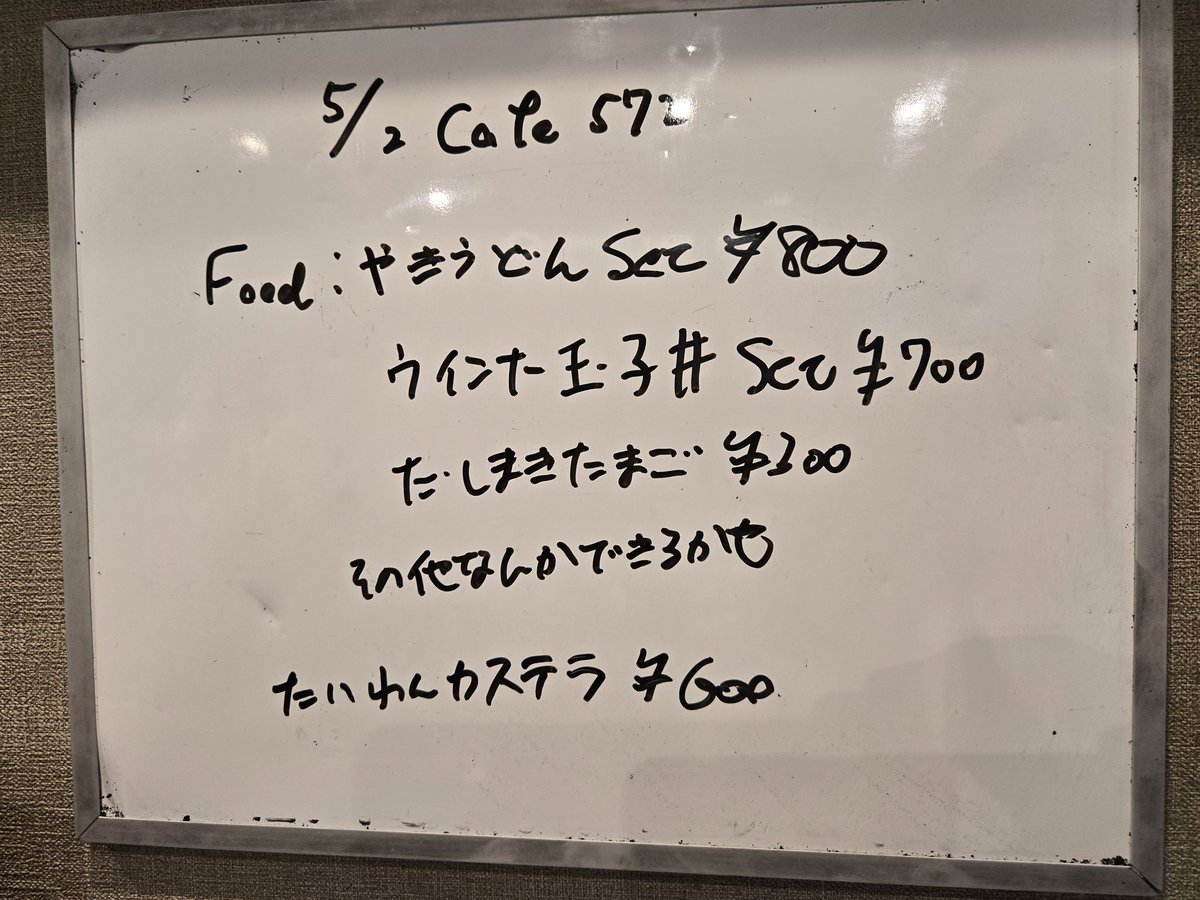 5/2 Cafe 572
Food:やきうどん Set ¥800
ウインナー玉子丼 Set ¥700
だしまきたまご ¥300
その他なんかできるかも
たいわんカステラ ¥600